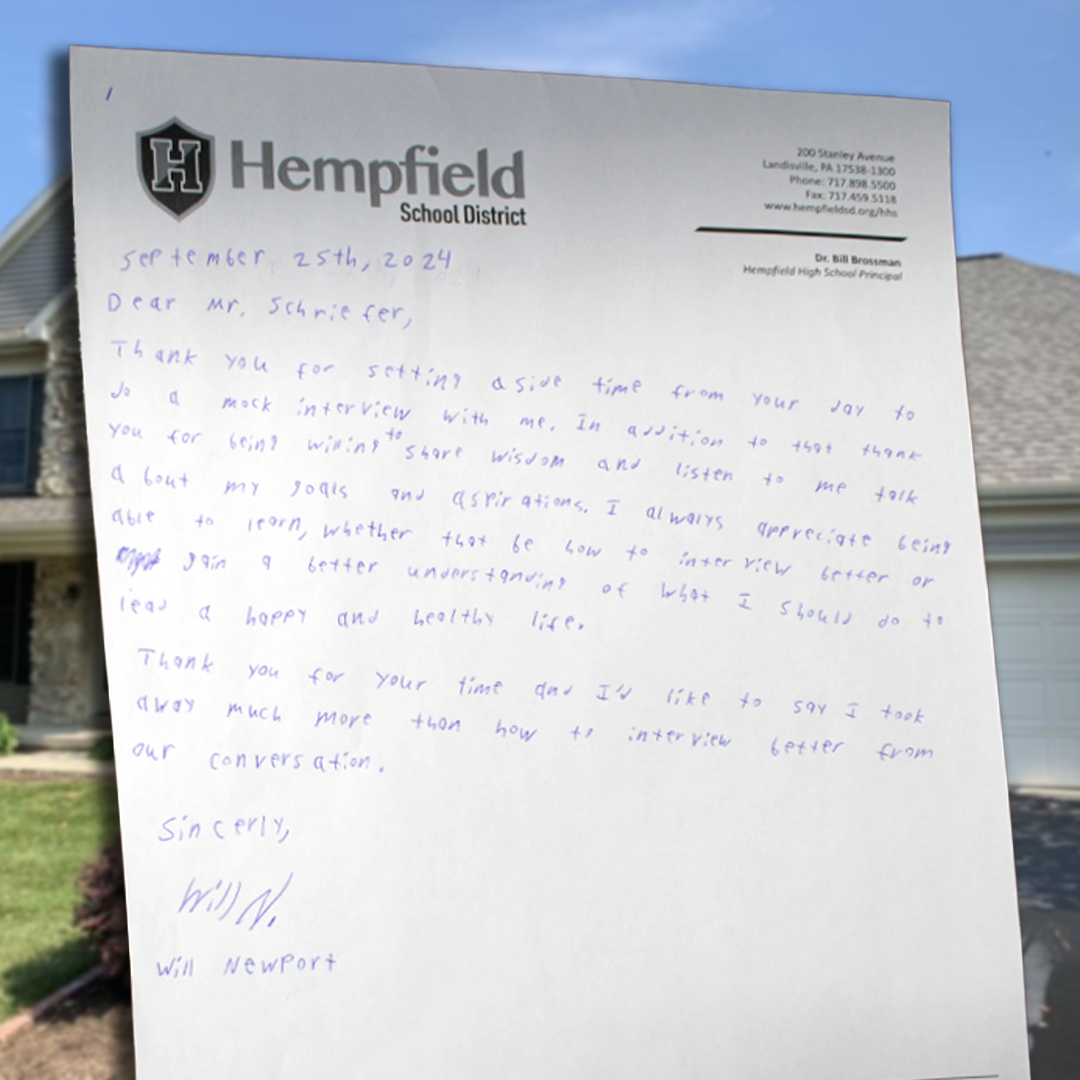 H Hempfield
School District
200 Stanley Avenue
Landisville, PA 17538-1300
Phone: 717.898.5500
Fax: 717.459.5118
www.hempfieldsd.org/hhs
Dr. Bill Brossman
Hempfield High School Principal
September 25th, 2024
Dear Mr. Schriefer,
Thank you for setting aside time from your day to
do a mock interview with me. In addition to that thank
you for being willing to share wisdom and listen to me talk
about my goals and aspirations. I always appreciate being
able to learn, whether that be how to interview better or
gain a better understanding of what I should do to
lead a happy and healthy life.
Thank you for your time and I'd like to say I took
away much more than how to interview better from
our conversation.
Sincerly,
Will N.
Will Newport